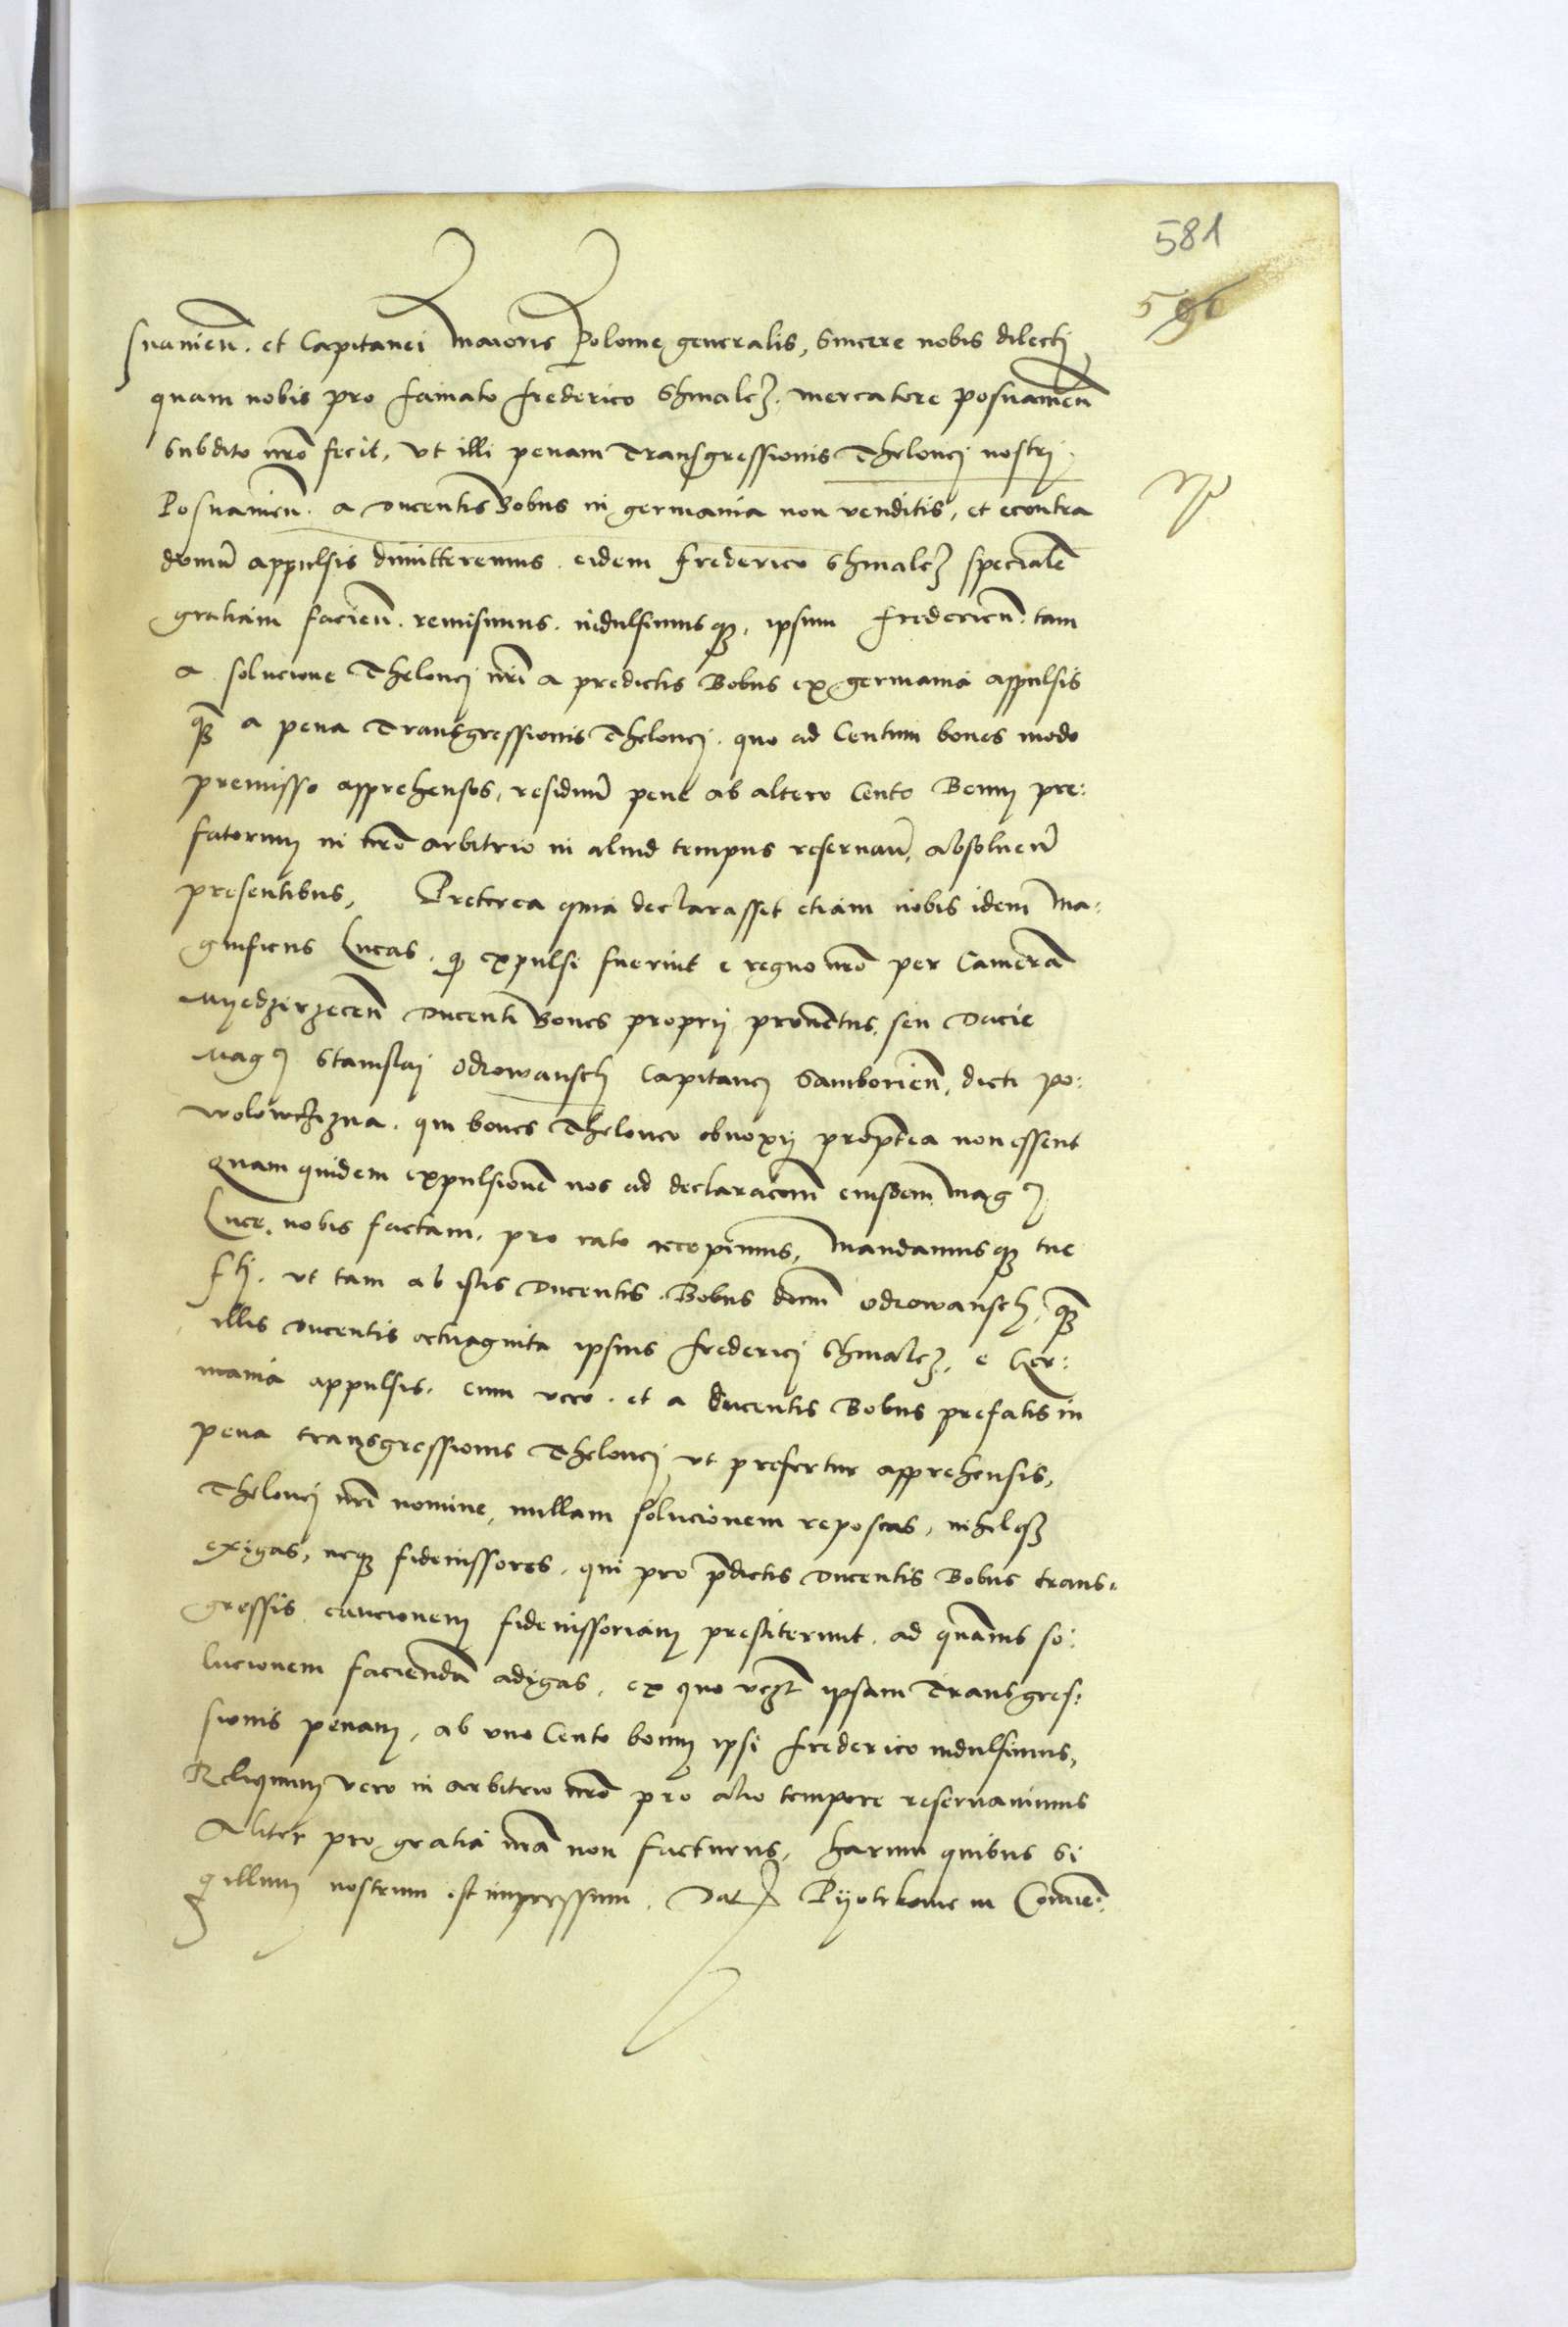 581
596
snanien̄. et Capitanei Maioris Polonie generalis, sincere nobis dilecti,
quam nobis pro famato Frederico Shmalcz. mercatore posnanien̄
subdito nr̄o fecit, vt illi penam Transgressionis Thelonej nostrj
Posnanien̄. a Ducentis Bobus in germania non venditis, et econtra
domū appulsis dimitteremus. eidem Frederico Shmalcz specialē
gratiam facien̄. remisimus. indulsimusqꝫ, ipsum Fredericū. tam
a solucione Thelonej nr̄i a predictis Bobus ex germania appulsis
qꝫ a pena Transgressionis Thelonej. quo ad Centum boues modo
premisso apprehensos, residuū pene ab altero Cento Boum pre:
fatorum in nr̄o arbitrio in aliud tempus reseruan̄, absoluen̄
presentibus, Preterea quia declarasset etiam nobis idem Ma:
gnificus Lucas. ꝙ expulsi fuerint e regno nr̄o per Camerā
Myedzirzecen̄ Ducenti Boues proprij prouētus, seu Dacie
Mag⁹ Stanislaj Odrowansch Capitanej Samborien̄, dicti po:
wolowczizna. qui boues Theloneo obnoxij propterea non essent
Quam quidem expulsionē nos ad declaracōem eiusdem Mag⁹
Luce, nobis factam, pro rato accepimus, Mandamusqꝫ tue
ftj. vt tam ab istis Ducentis. Bobus dicti Odrowansch, qꝫ
illis Ducentis octuaginta ipsius Frederici Shmalcz, e Ger:
mania appulsis. cum vero. et a ducentis Bobus prefatis in
pena transgressionis Thelonej, vt prefertur apprehensis,
Thelonej nr̄i nomine, nullam solucionem reposcas, nihilqꝫ
exigas, neqꝫ fideiussores, qui pro p̄dictis Ducentis Bobus trans:
gressis, caucionem fideiussoriam prestiterunt, ad quamuis so:
lucionem faciendā adigas, ex quo vtꝫ ipsam Transgres:
sionis penam, ab vno Cento boum ipsi Frederico indulsimus,
Reliquum vero in arbitrio nr̄o pro alio tempore reseruauimus
Aliter pro gratia nr̄a non facturus, harum quibus Si
gillum nostrum est impressum. Dat Pijotrkouie in Conuen: